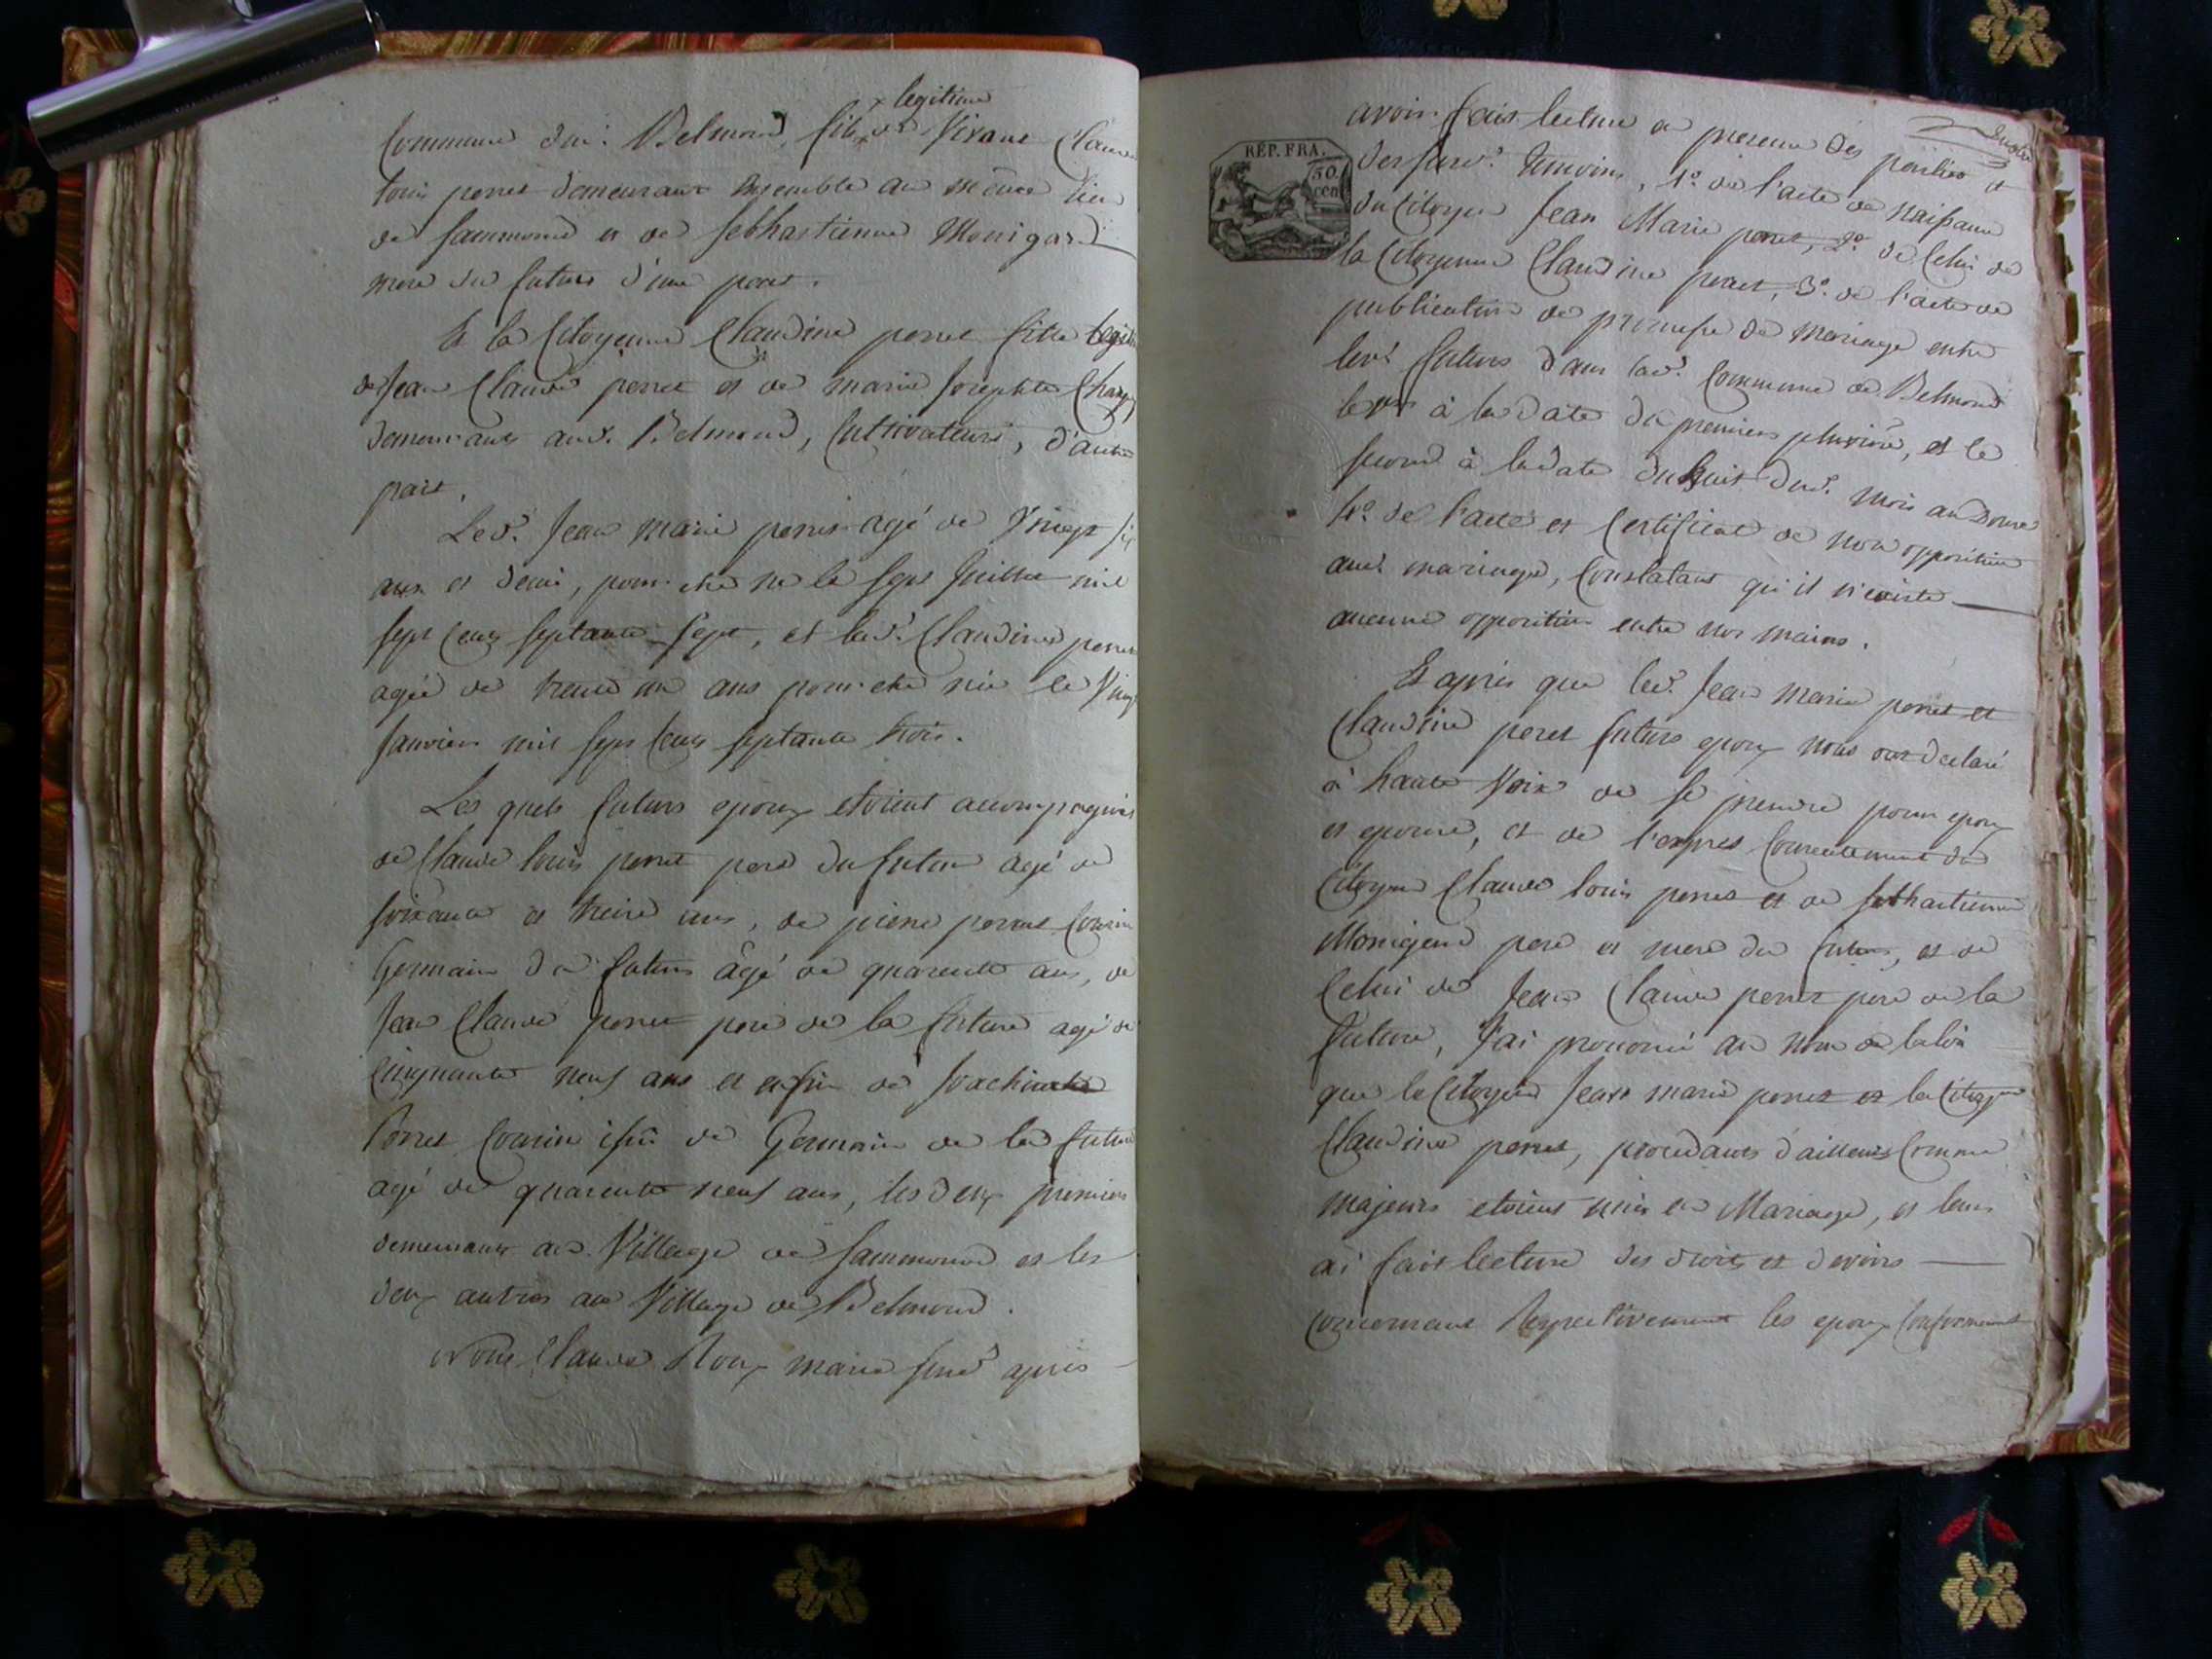 legitime
Commune dud. Belmond, fils de Vivant Claude
louis perret demeurant ensemble au même lieu
de Sammond et de Sebhastienne Monigard
mere du futur d'une part.
Et la Citoyenne Claudine perret fille legit
de Jean Claude perret et de marie Josephte
demeurants aud. Belmond, Cultivateurs, d'autre
part.
Led. Jean marie perret agé de Vingt six
ans et demi, pour etre né le sept Juillet mil
sept cent septante sept, et lad. Claudine perret
agée de trente un ans pour etre née le Vingt
Janvier mil sept cent septante trois.
Les quels futurs epoux etoient accompagnés
de Claude louis perret pere du futur agé de
soixante et treize ans, de pierre perret Cousin
Germain du futur âgé de quarente ans, de
Jean Claude perret pere de la future agé de
Cinquante neuf ans et enfin de
Perret Cousin issu de Germain de la future
agé de quarente neuf ans, les deux premiers
demeurants au Village de Sammond et les
deux autres au Village de Belmond.
Nous Claude Roux maire susd. après
avoir fait lecture en presence des parties et
dessusd. temoins, 1o. de l'acte de naissance
du Citoyen Jean Marie perret, 2o. de celui de
la Citoyenne Claudine perret, 3o. de l'acte de
publication de promesse de mariage entre
lesd. futurs dans lad. Commune de Belmond
le 1er à la date du premier pluviôse, et le
second à la date du huit dud. mois an douze
4o. de l'acte et Certificat de non opposition
aud. mariage, Constatant qu'il n'existe
aucune opposition entre nos mains.
Et après que led. Jean marie perret et
Claudine peret futurs epoux nous ont declaré
à haute Voix de se prendre pour epoux
et epouse, et de l'exprès Consentement du
Citoyen Claude louis perret et de Sebhastienne
Monigard pere et mere du futur, et de
Celui de Jean Claude perret pere de la
future, J'ai prononcé au nom de la loi
que le Citoyen Jean marie perret et la Citoyenne
Claudine perret, procedants d'ailleurs Comme
majeurs etoient unis en Mariage, et leur
ai fait lecture des droits et devoirs
Concernant Respectivement les epoux Conformement
RÉP. FRA.
50
cen